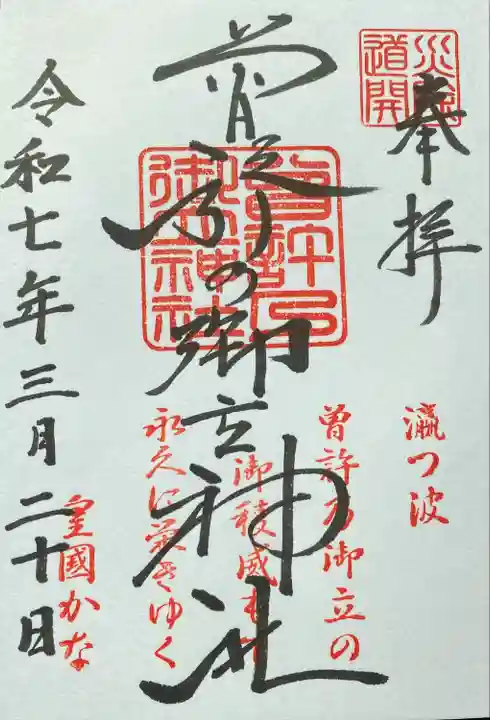 災除
道開
奉拝
曽許乃御立神社
曽許乃
御立神社
瀛つ波
曽許乃御立の
御稜威もて
永久に栄きゆく
皇國かな
令和七年三月二十日